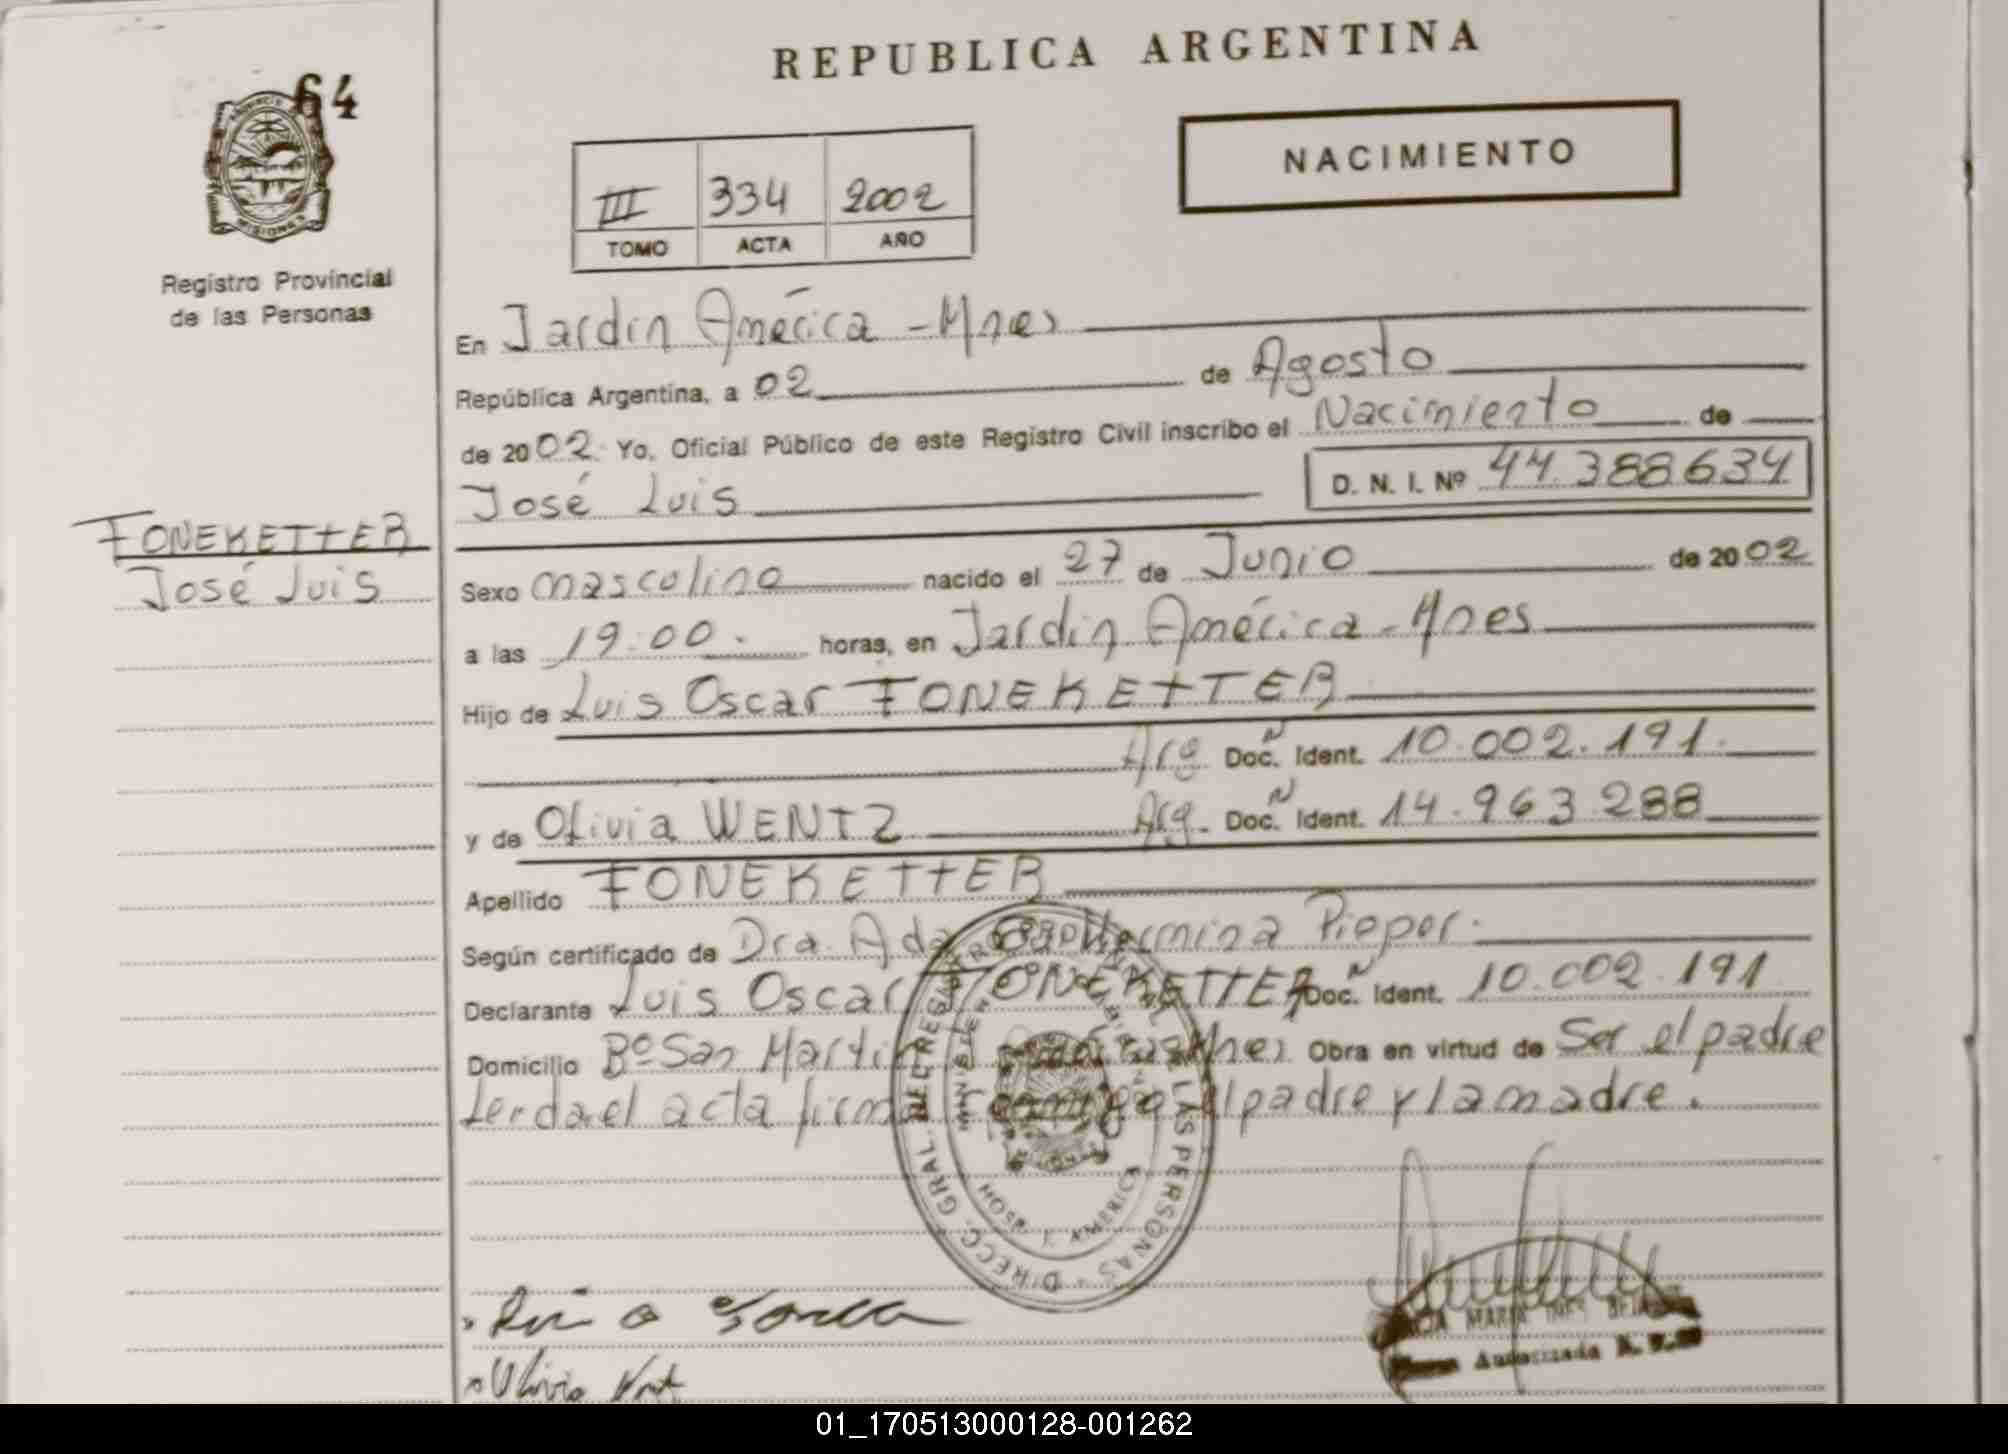 REPUBLICA ARGENTINA
64
PROVINCIA
MISIONES
Registro Provincial
de las Personas
NACIMIENTO
III 334 2002
TOMO ACTA AÑO
En Jardín América - Mnes
República Argentina, a 02 de Agosto
de 2002. Yo, Oficial Público de este Registro Civil inscribo el Nacimiento de
José Luis D. N. I. Nº 44.388.634
FONEKETTER
José Luis
Sexo masculino nacido el 27 de Junio de 2002
a las 19:00. horas, en Jardín América - Mnes
Hijo de Luis Oscar FONEKETTER
Arg. Doc. N Ident. 10.002.191.
y de Olivia WENTZ Arg. Doc. N Ident. 14.963.288
Apellido FONEKETTER
Según certificado de Dra. Ada Hermina Pieper.
Declarante Luis Oscar FONEKETTER Doc. N Ident. 10.002.191
Domicilio Bº San Martín Mnes Obra en virtud de Ser el padre
Leida el acta firma conmigo el padre y la madre.
DIRECC. GRAL. DEL REGISTRO DE LAS PERSONAS
AMERICA
MARIA INES
Autorizada
01_170513000128-001262